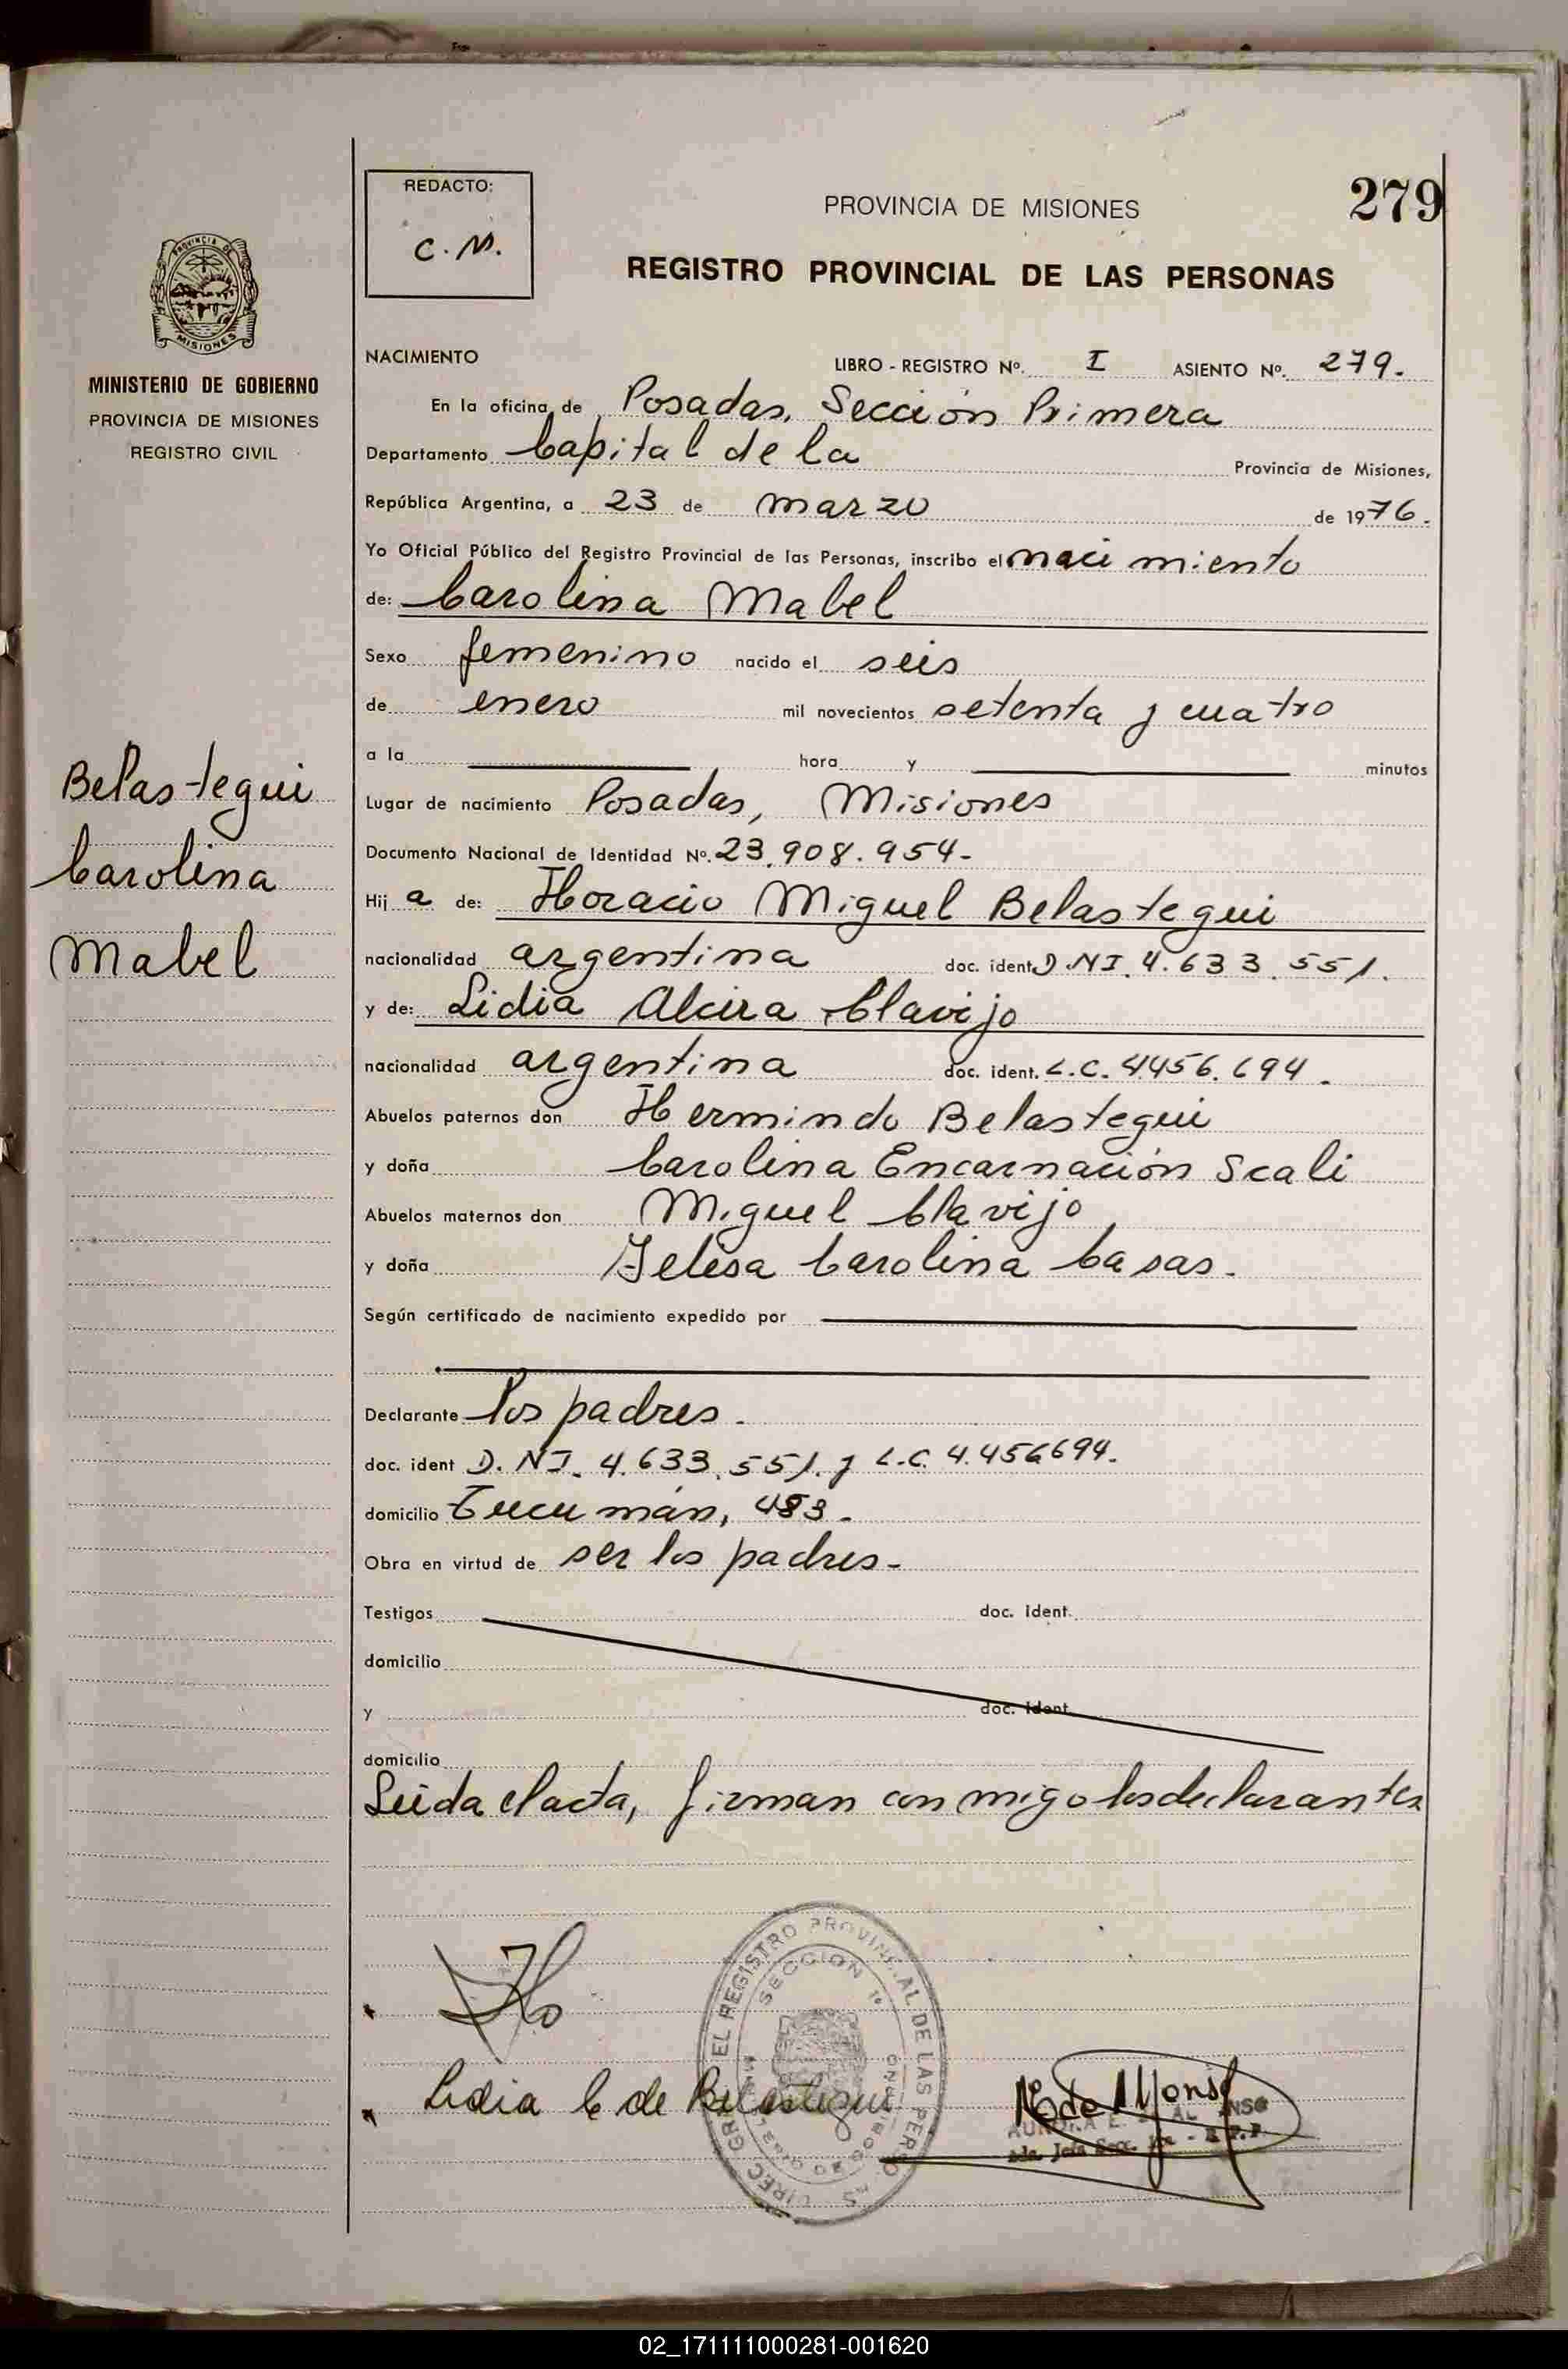 279
REDACTO:
C. M.
PROVINCIA DE MISIONES
REGISTRO PROVINCIAL DE LAS PERSONAS
PROVINCIA DE
MISIONES
MINISTERIO DE GOBIERNO
PROVINCIA DE MISIONES
REGISTRO CIVIL
Belastegui
Carolina
Mabel
NACIMIENTO LIBRO - REGISTRO Nº. I ASIENTO Nº. 279.
En la oficina de Posadas, Sección Primera
Departamento Capital de la Provincia de Misiones,
República Argentina, a 23 de marzo de 1976.
Yo Oficial Público del Registro Provincial de las Personas, inscribo el nacimiento
de: Carolina Mabel
Sexo femenino nacido el seis
de enero mil novecientos setenta y cuatro
a la hora y minutos
Lugar de nacimiento Posadas, Misiones
Documento Nacional de Identidad Nº. 23.908.954-
Hij a de: Horacio Miguel Belastegui
nacionalidad argentina doc. ident. D.NI. 4.633.551.
y de: Lidia Alcira Clavijo
nacionalidad argentina doc. ident. L.C. 4456.694.
Abuelos paternos don Hermindo Belastegui
y doña Carolina Encarnación Scali
Abuelos maternos don Miguel Clavijo
y doña Telesa Carolina Casas.
Según certificado de nacimiento expedido por
Declarante los padres.
doc. ident D. NI. 4.633.551. y L.C. 4.456694.
domicilio Tucumán, 483.
Obra en virtud de ser los padres-
Testigos doc. ident.
domicilio
y doc. ident.
domicilio
Leida el acta, firman con migo los declarantes
Lidia C de Belastegui
EL REGISTRO PROVINCIAL DE LAS PERSONAS
SECCION 1º
02_171111000281-001620